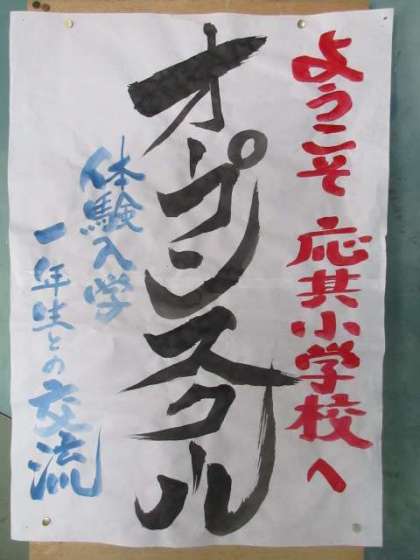 ようこそ 応其小学校へ
オープンスクール
体験入学
一年生との交流